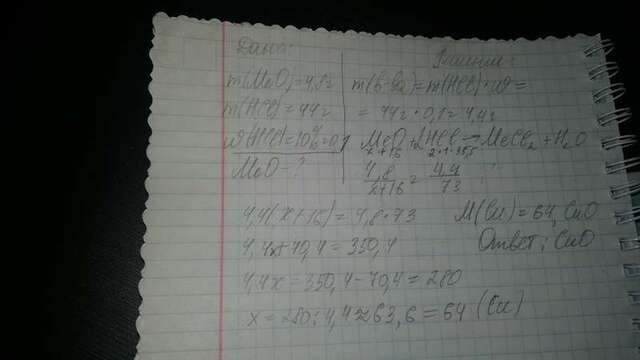 Дано:
Решение:
m(MeO)=4,8г
m(HCl)=44г
w(HCl)=10%=0,1
MeO-?
m(в-ва)=m(HCl)·w=
=44г·0,1=4,4г
MeO+2HCl→MeCl2+H2O
x+16 2·1·35,5
4,8/x+16=4,4/73
4,4(x+16)=4,8·73
4,4x+70,4=350,4
4,4x=350,4-70,4=280
x=280:4,4≈63,6=64 (Cu)
M(Cu)=64, CuO
Ответ: CuO